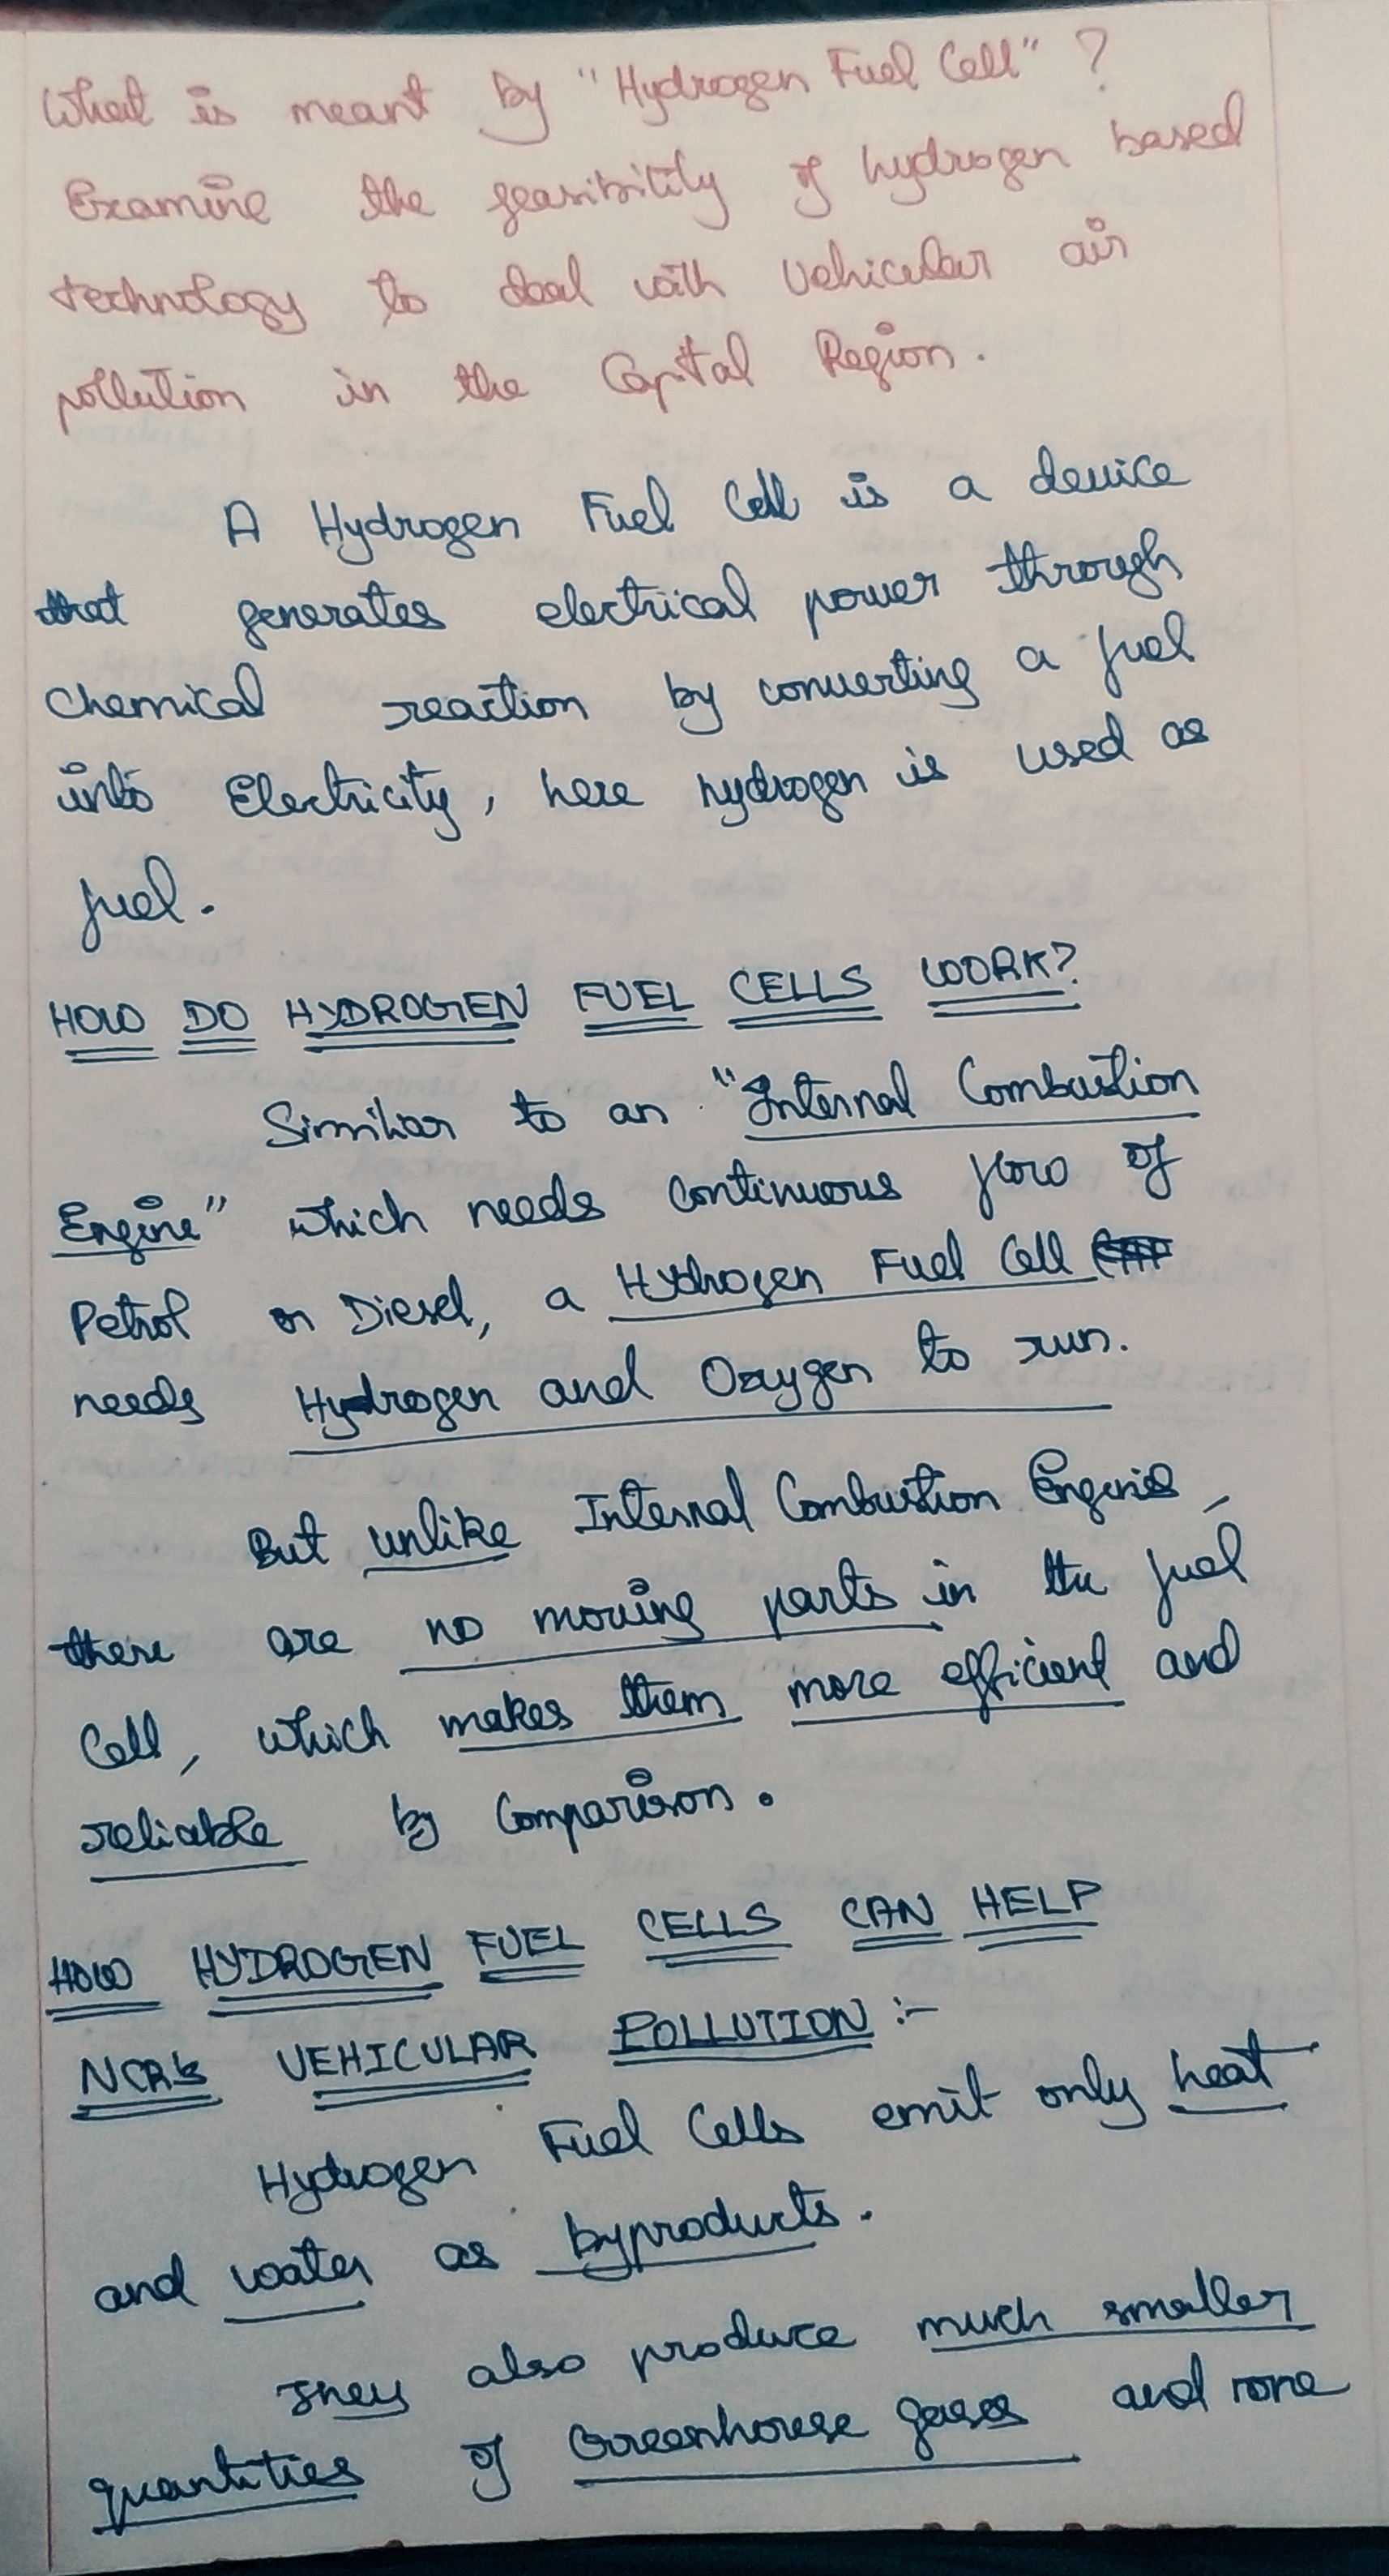 What is meant by "Hydrogen Fuel Cell" ?
Examine the feasibility of hydrogen based
technology to deal with vehicular air
pollution in the Capital Region.
A Hydrogen Fuel Cell is a device
that generates electrical power through
Chemical reaction by converting a fuel
into Electricity, here hydrogen is used as
fuel.
HOW DO HYDROGEN FUEL CELLS WORK?
Similiar to an "Internal Combustion
Engine" which needs continuous flow of
Petrol or Diesel, a Hydrogen Fuel Cell
needs Hydrogen and Oxygen to run.
But unlike Internal Combustion Engines,
there are no moving parts in the fuel
Cell, which makes them more efficient and
reliable by Comparison.
HOW HYDROGEN FUEL CELLS CAN HELP
NCR's VEHICULAR POLLUTION :-
Hydrogen Fuel Cells emit only heat
and water as byproducts.
They also produce much smaller
quantities of Greenhouse gases and none